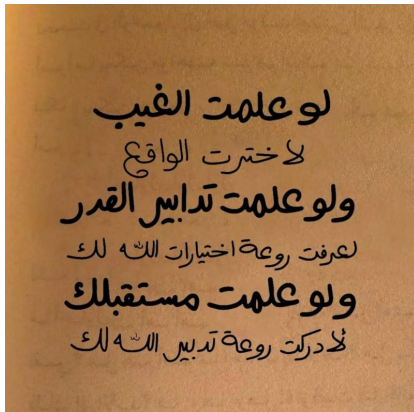 لو علمت الغيب
لاخترت الواقع
ولو علمت تدابير القدر
لعرفت روعة اختيارات الله لك
ولو علمت مستقبلك
لأدركت روعة تدبير الله لك